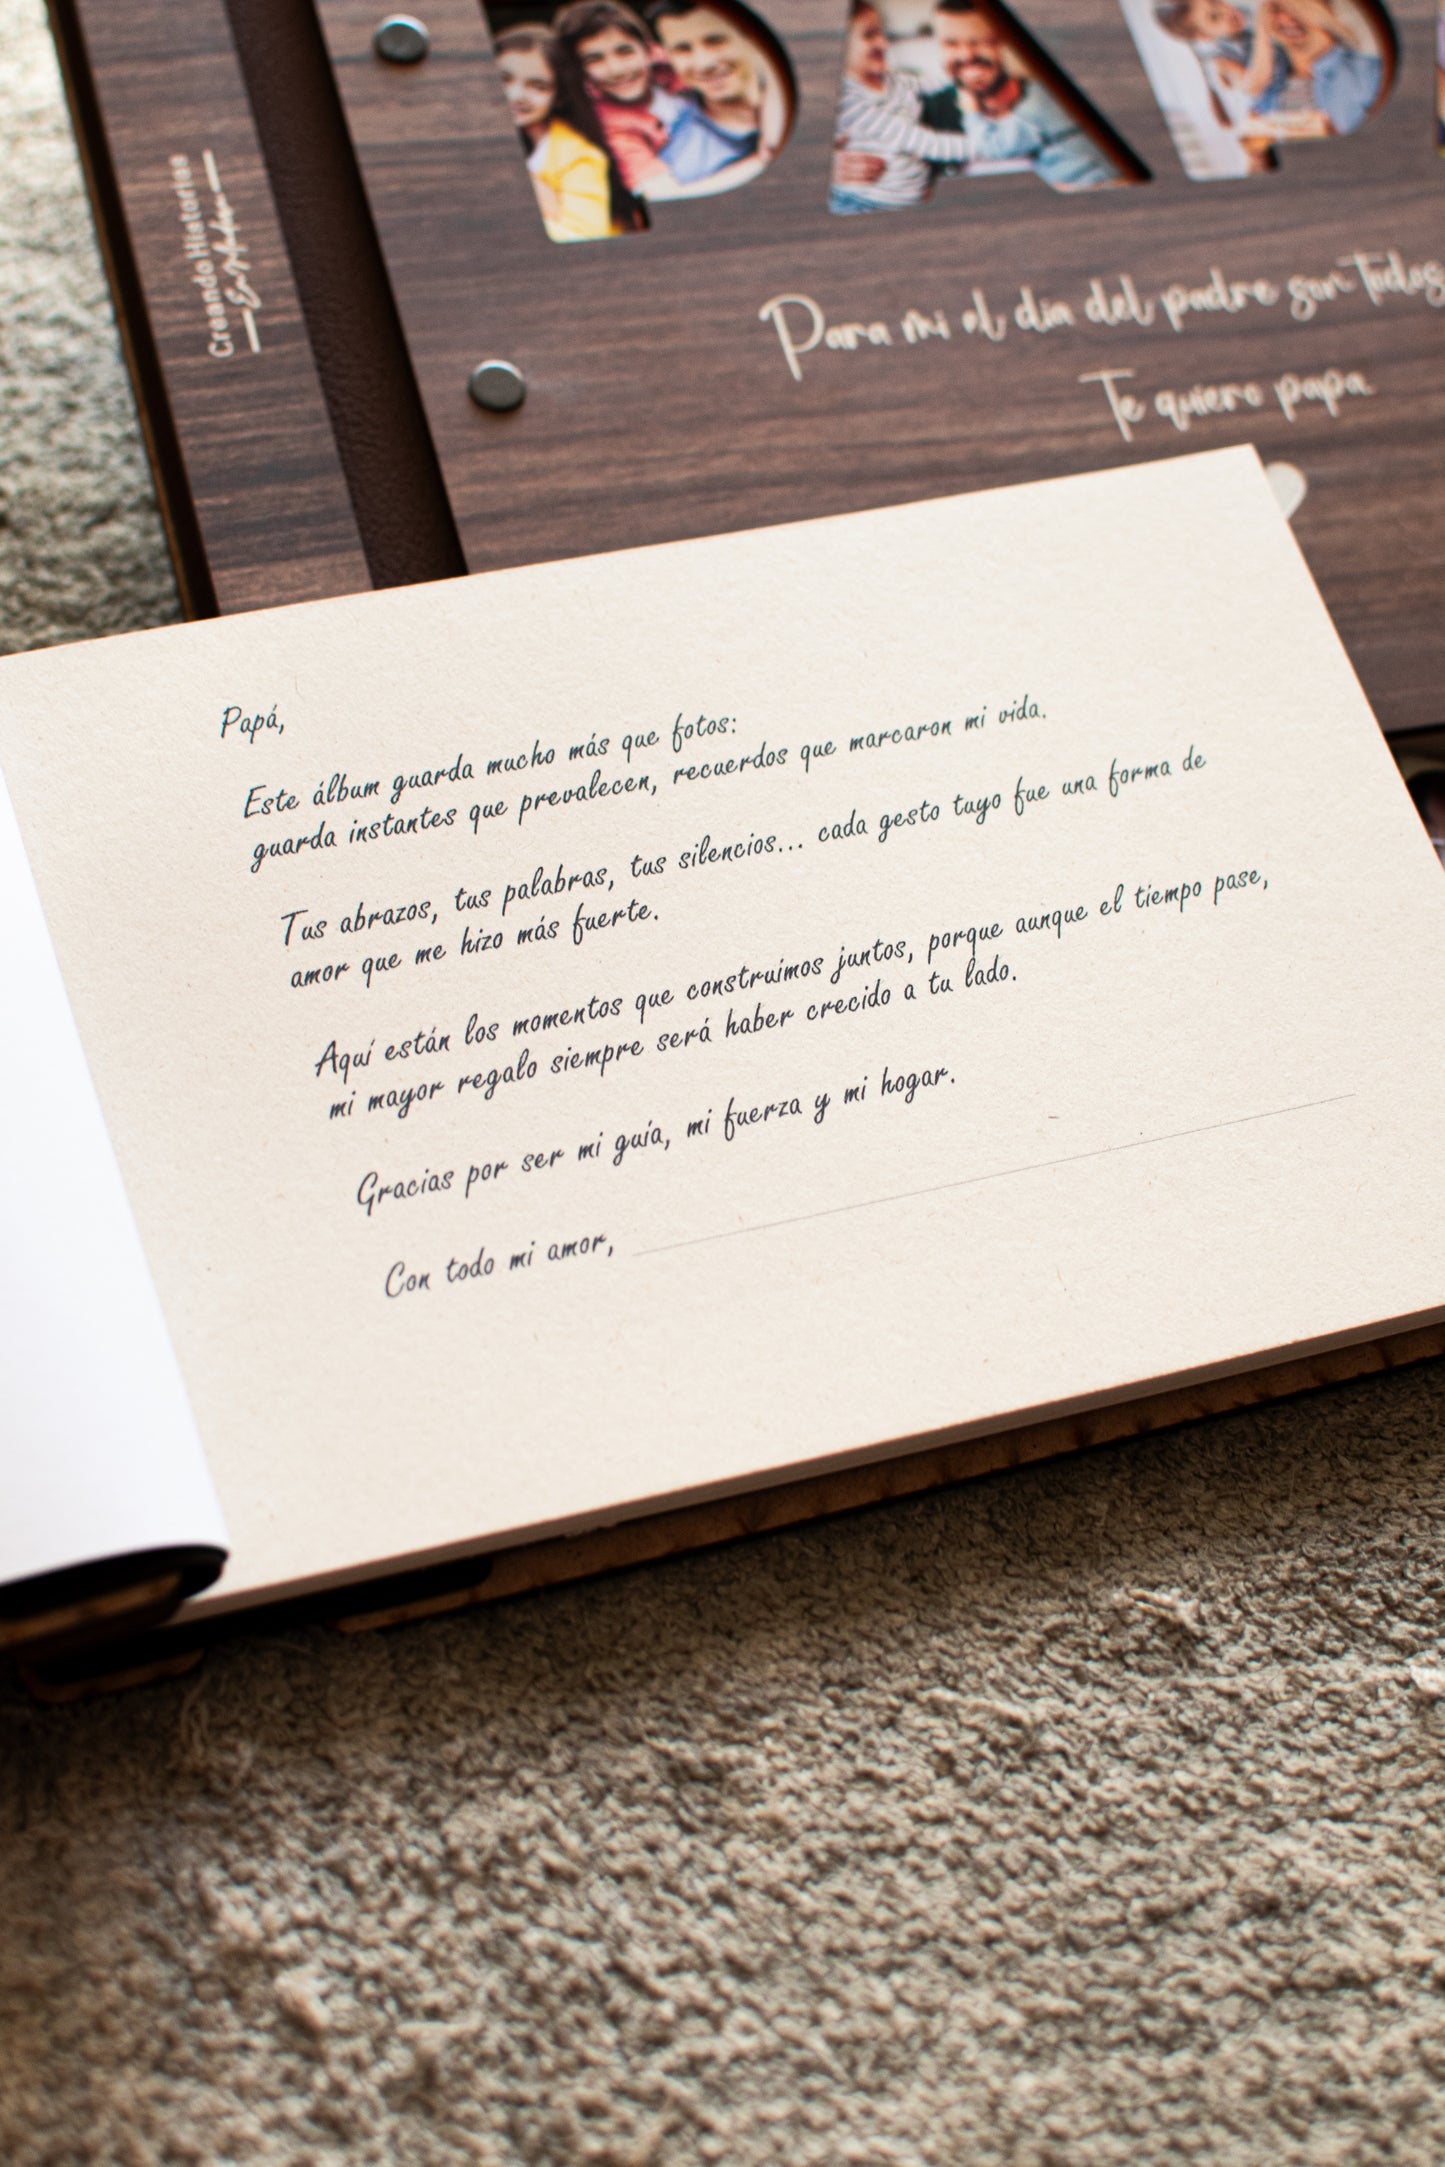 PAP
Creando Historias
Para mi el dia del padre son Todos
Te quiero papa
Papá,
Este álbum guarda mucho más que fotos:
guarda instantes que prevalecen, recuerdos que marcaron mi vida.
Tus abrazos, tus palabras, tus silencios... cada gesto tuyo fue una forma de
amor que me hizo más fuerte.
Aquí están los momentos que construimos juntos, porque aunque el tiempo pase,
mi mayor regalo siempre será haber crecido a tu lado.
Gracias por ser mi guía, mi fuerza y mi hogar.
Con todo mi amor,